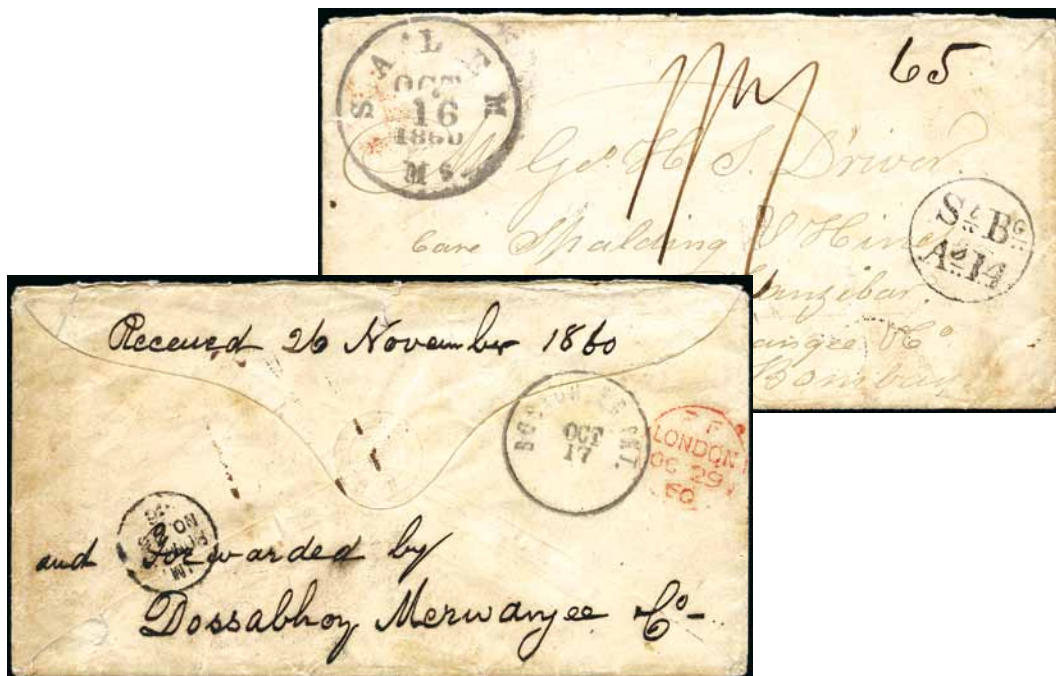 SALEM
OCT
16
1860
Ms.
65
Geo. H. S. Driver
Care Spalding & Hines
Zanzibar.
angee & Co
Bombay
St. Bg.
Ad. 14
Received 26 November 1860
BOSTON BR. PKT.
OCT
17
LONDON
OC 29
60
and Forwarded by
Dossabhoy Merwanjee & Co-